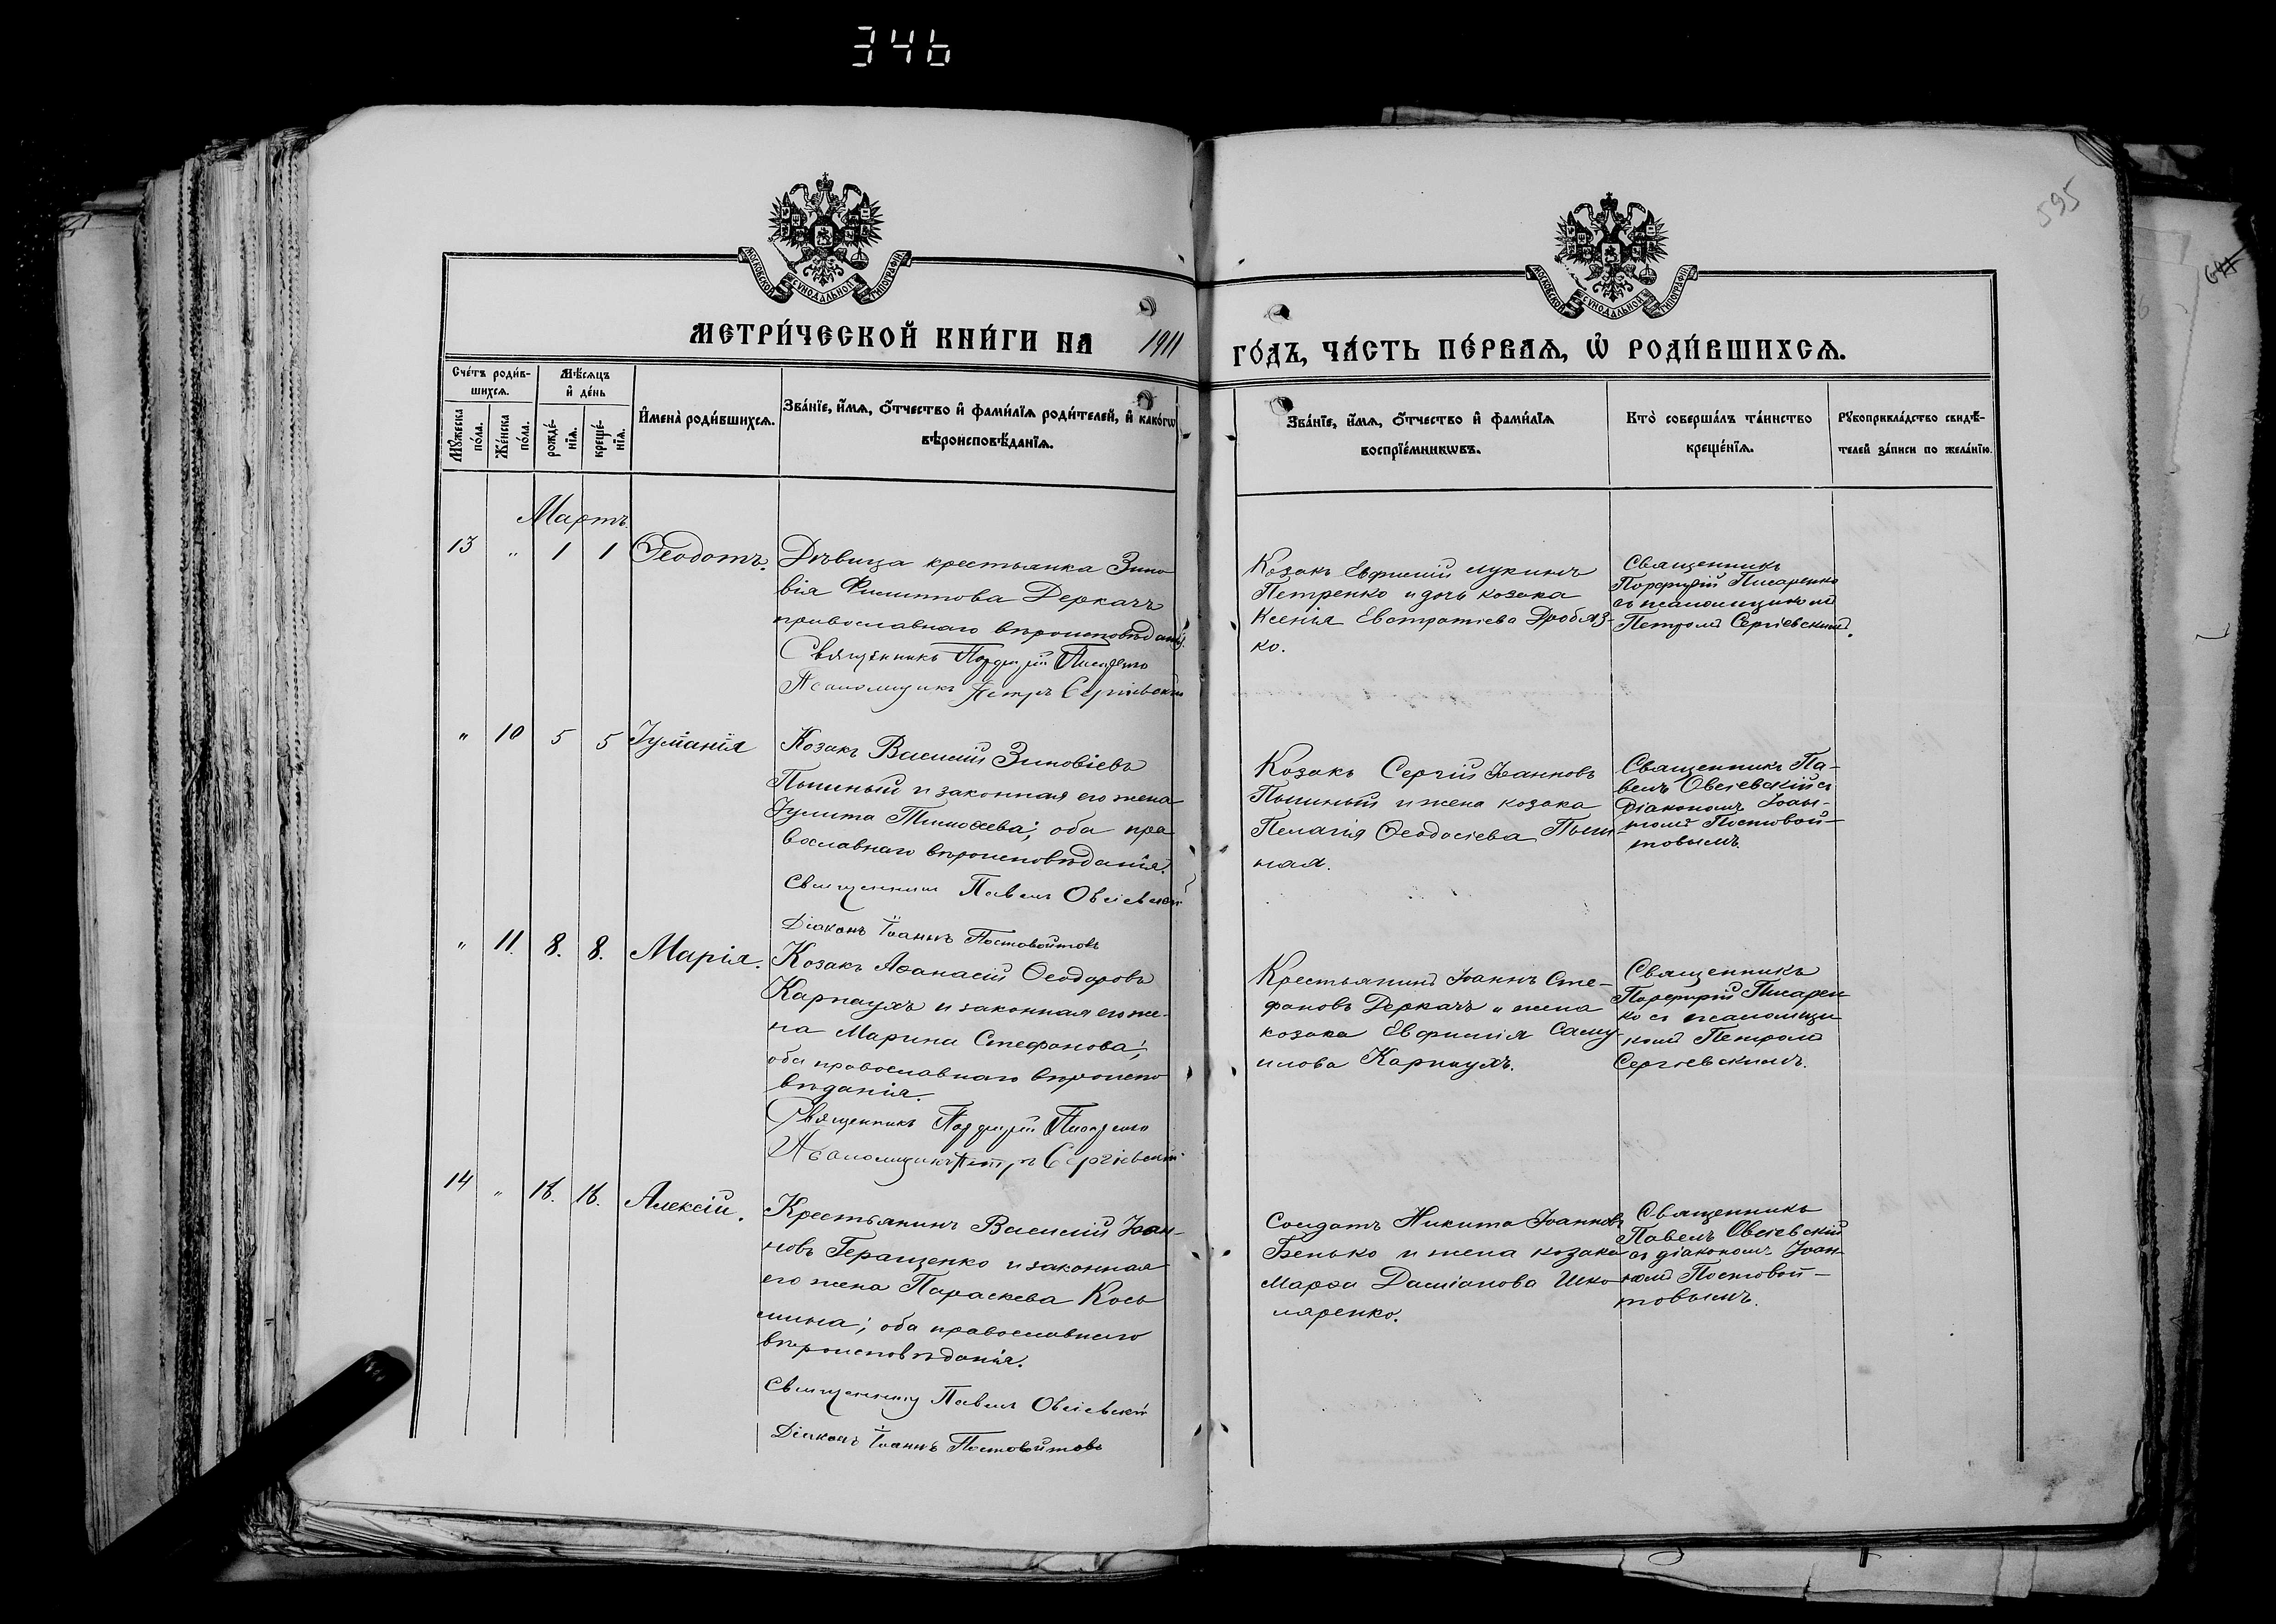 346
595
МОСКОВСКОЙ СѴНОДАЛЬНОЙ ТИПОГРАФІИ
МОСКОВСКОЙ СѴНОДАЛЬНОЙ ТИПОГРАФІИ
МЕТРИ́ЧЕСКОЙ КНИ́ГИ НА 1911
ГО́ДЪ, ЧА́СТЬ ПЕ́РВАЯ, Ѡ҆ РОДИ́ВШИХСЯ.
Сче́тъ роди́в-
шихся.
Мѣ́сяцъ
и҆ де́нь
Мꙋ́жеска
по́ла.
Же́нска
по́ла.
рожде́-
нїя.
креще́-
нїя.
И҆мена̀ роди́вшихся.
Зва́нїе, и҆́мя, ѻ҆́тчество и҆ фами́лїя роди́телей, и҆ како́гѡ
вѣроисповѣ́данїя.
Зва́нїе, и҆́мя, ѻ҆́тчество и҆ фами́лїя
воспрїе́мникѡвъ.
Кто̀ соверша́лъ та́инство
креще́нїя.
Рꙋкоприкла́дство свидѣ́-
телей за́писи по жела́нїю.
Мартъ.
13 " 1 1 Ѳеодотъ.
Дѣвица крестьянка Зино
вія Филиппова Деркачъ
православнаго вѣроисповѣданія.
Священникъ Порфирій Писаренко
Псаломщикъ Петръ Сергіевскій
Козакъ Евфимій Лукинъ
Петренко и дочь козака
Ксенія Евстратіева Дробяз-
ко.
Священникъ
Порфирій Писаренко
съ псаломщикомъ
Петромъ Сергіевскимъ.
" 10 5 5 Іуліанія
Козакъ Василій Зиновіевъ
Пышный и законная его жена
Іулита Тимоѳеева; оба пра
вославнаго вѣроисповѣданія.
Священникъ Павелъ Овсіевскій
Діаконъ Іоаннъ Постовойтовъ
Козакъ Сергій Іоанновъ
Пышный и жена козака
Пелагія Ѳеодосіева Пыш
ная.
Священникъ Па-
велъ Овсіевскій съ
Діакономъ Іоан-
номъ Постовой-
товымъ.
" 11. 8. 8. Марія.
Козакъ Аѳанасій Ѳеодоровъ
Карпаухъ и законная его же-
на Марина Стефанова;
оба православнаго вѣроиспо
вѣданія.
Священникъ Порфирій Писаренко
Псаломщикъ Петръ Сергіевскій
Крестьянинъ Іоаннъ Сте-
фановъ Деркачъ и жена
козака Евфимія Саму-
илова Карпаухъ.
Священникъ
Порфирій Писарен
ко съ псаломщи
комъ Петромъ
Сергіевскимъ.
14 " 18. 18. Алексій.
Крестьянинъ Василій Іоан-
новъ Геращенко и законная
его жена Параскева Кось
мина; оба православнаго
вѣроисповѣданія.
Священникъ Павелъ Овсіевскій
Діаконъ Іоаннъ Постовойтовъ
Солдатъ Никита Іоанновъ
Бенько и жена козака
Марѳа Даміанова Шко
ляренко.
Священникъ
Павелъ Овсіевскій
съ діакономъ Іоан-
номъ Постовой-
товымъ.